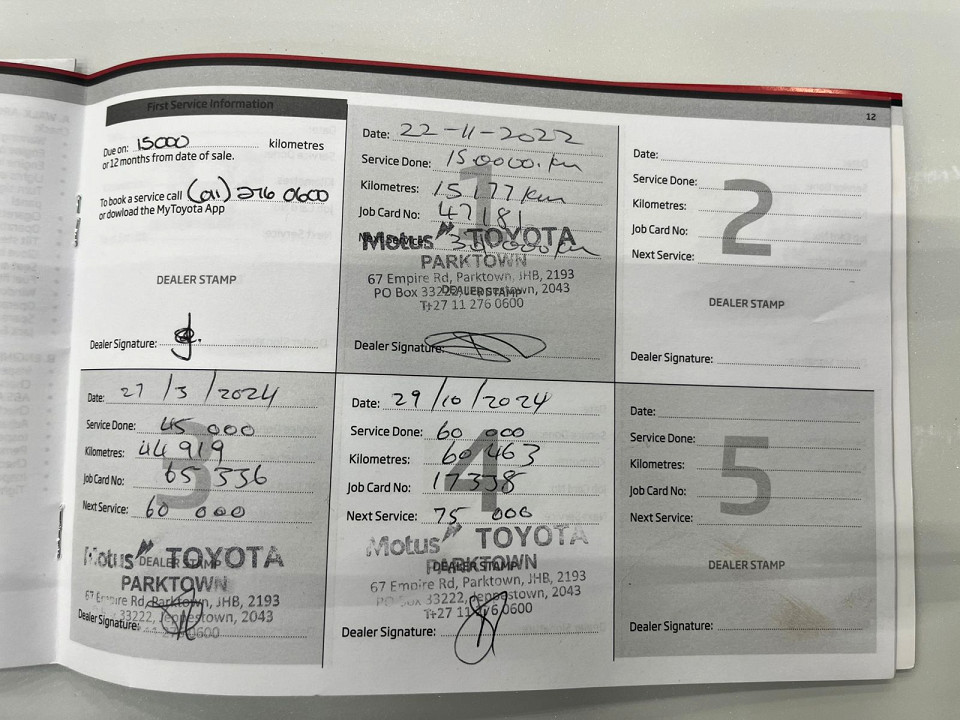 12
First Service Information
Due on: 15000 kilometres
or 12 months from date of sale.
To book a service call (011) 276 0600
or dowload the MyToyota App
DEALER STAMP
Dealer Signature:
1
Date: 22-11-2022
Service Done: 15.0000.km
Kilometres: 15177km
Job Card No: 47181
Next Service:
Motus TOYOTA
PARKTOWN
67 Empire Rd, Parktown, JHB, 2193
PO Box 33222, Jeppestown, 2043
DEALER STAMP
T+27 11 276 0600
Dealer Signature:
2
Date:
Service Done:
Kilometres:
Job Card No:
Next Service:
DEALER STAMP
Dealer Signature:
3
Date: 27/3/2024
Service Done: 45 000
Kilometres: 44 919
Job Card No: 65 336
Next Service: 60 000
Motus TOYOTA
DEALER STAMP
PARKTOWN
67 Empire Rd, Parktown, JHB, 2193
33222, Jeppestown, 2043
Dealer Signature:
4
Date: 29/10/2024
Service Done: 60 000
Kilometres: 60 463
Job Card No: 17338
Next Service: 75 000
Motus TOYOTA
DEALER STAMP
PARKTOWN
67 Empire Rd, Parktown, JHB, 2193
PO Box 33222, Jeppestown, 2043
T+27 11 276 0600
Dealer Signature:
5
Date:
Service Done:
Kilometres:
Job Card No:
Next Service:
DEALER STAMP
Dealer Signature: